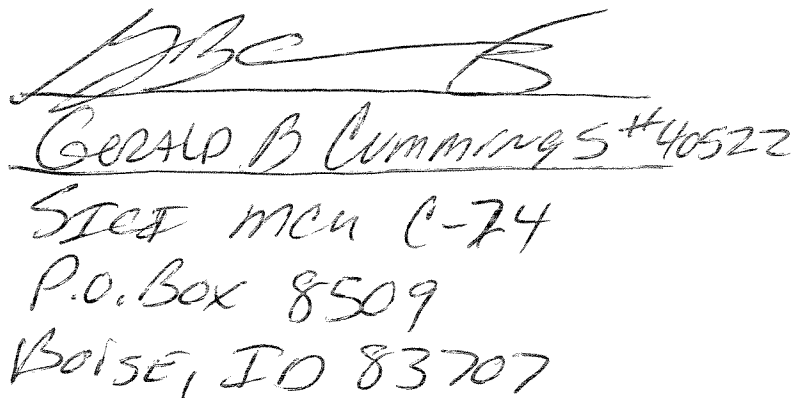 Gerald B Cummings #40522
SICI MCU C-24
P.O. Box 8509
Boise, ID 83707